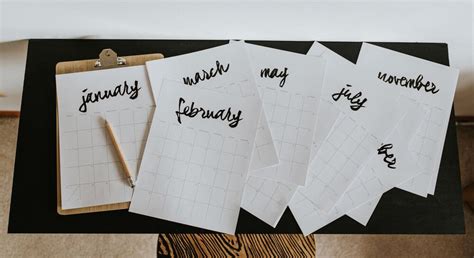 january
march
february
may
july
november
ber